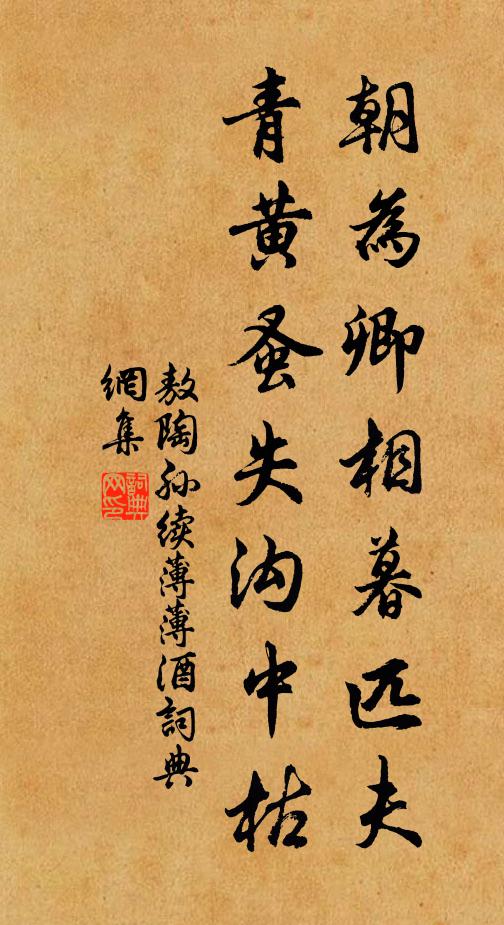 朝為卿相暮匹夫
青黄蚤失沟中枯
敖陶孙续薄薄酒詞典
網集
詞典网印